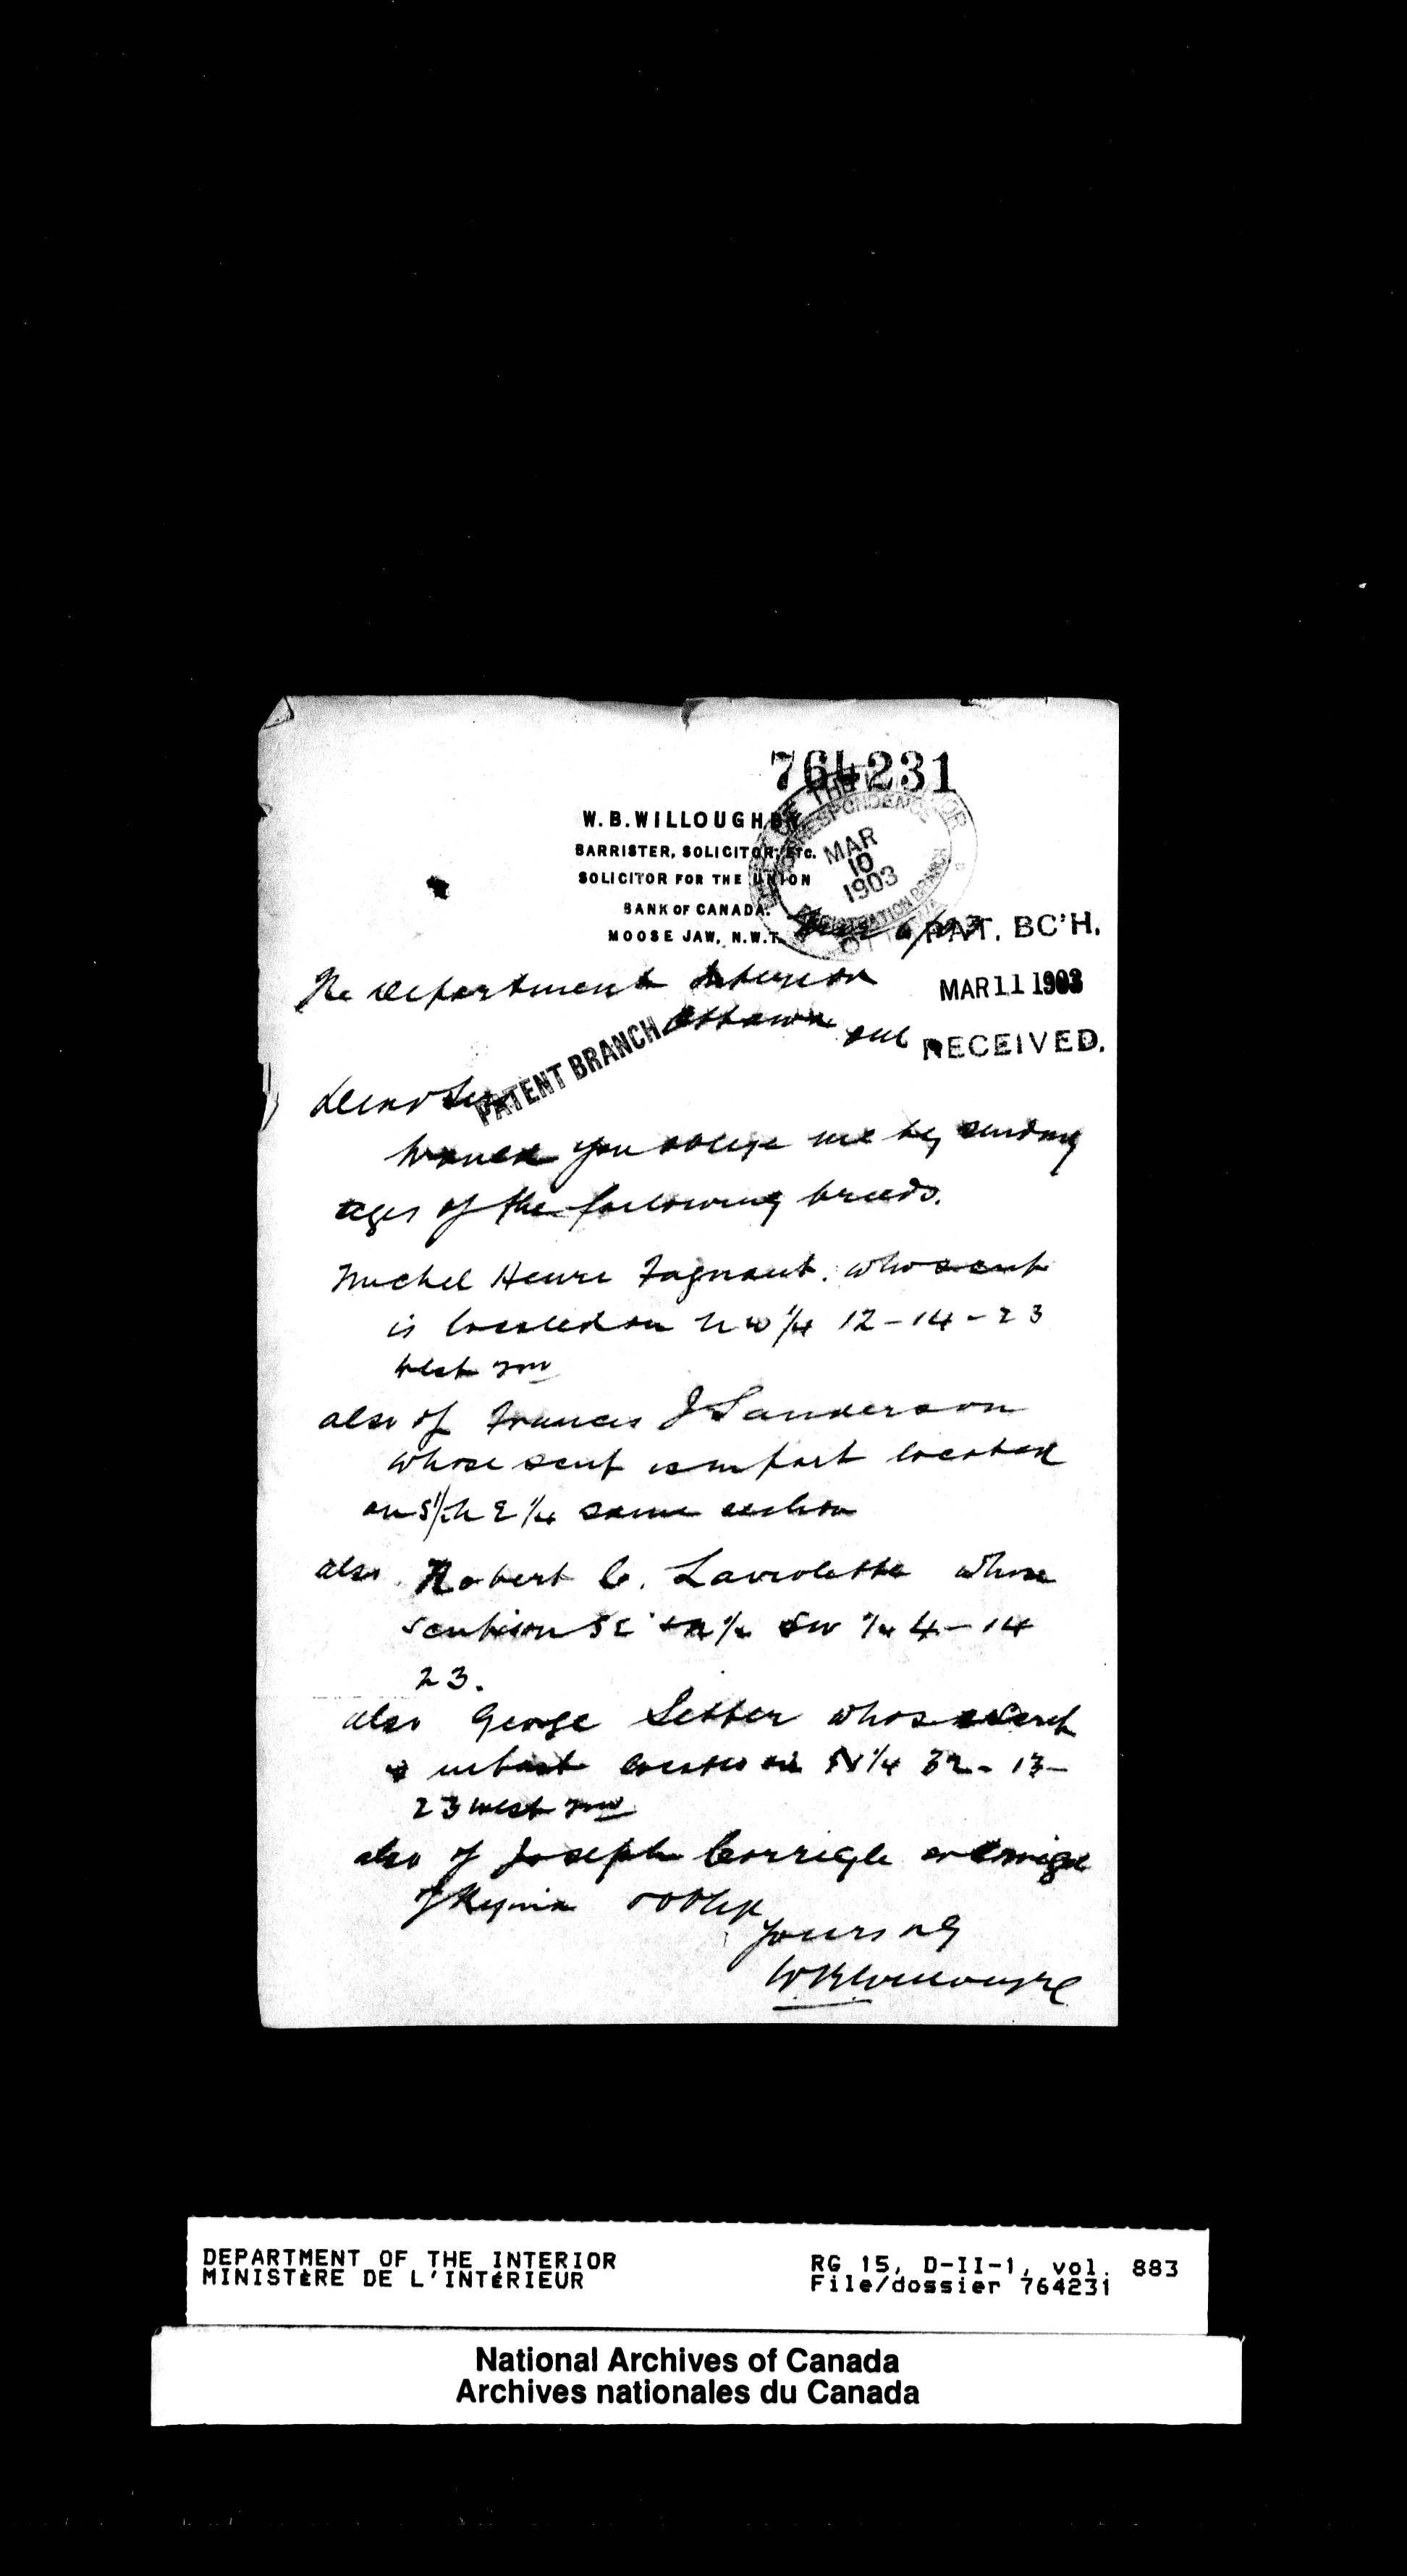 764231
W. B. WILLOUGHBY
BARRISTER, SOLICITOR, ETC.
SOLICITOR FOR THE UNION
BANK OF CANADA.
MOOSE JAW, N.W.T.
MAR
10
1903
PAT. BC'H.
MAR 11 1903
RECEIVED.
The Department Interior
Ottawa Ont
PATENT BRANCH
Dear Sir
Would you oblige me by sending
ages of the following breeds.
Michel Henri Fagnant. whose scrip
is located on NW 1/4 12-14-23
West
also of Francis J Sanderson
whose scrip is in part located
on S 1/2 N E 1/4 same section
also Robert C. Laviolette whose
scrip is on SE SW 1/4 4-14
23.
also George Setter whose scrip
in part located on 1/4 32-13-
23 West
also of Joseph Corrigle or
of Regina
Yours
W B Willoughby
DEPARTMENT OF THE INTERIOR
MINISTÈRE DE L'INTÉRIEUR
RG 15, D-II-1, vol. 883
File/dossier 764231
National Archives of Canada
Archives nationales du Canada